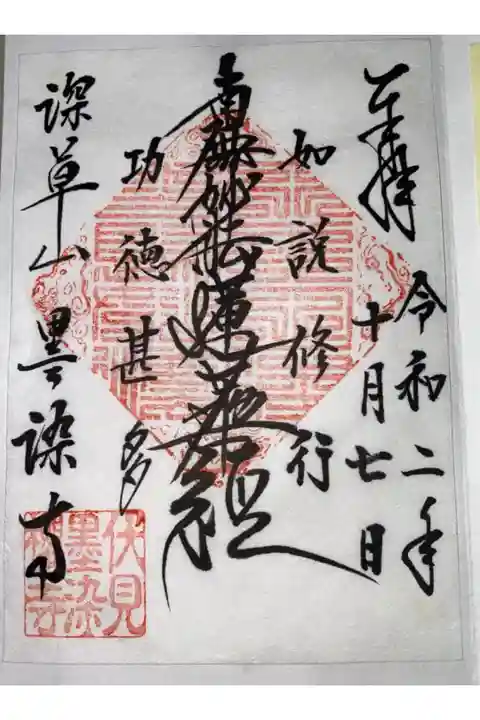 奉拝
令和二年
十月七日
如説修行
南無妙法蓮華経
功徳甚多
深草山 墨染寺
伏見
墨染
桜寺